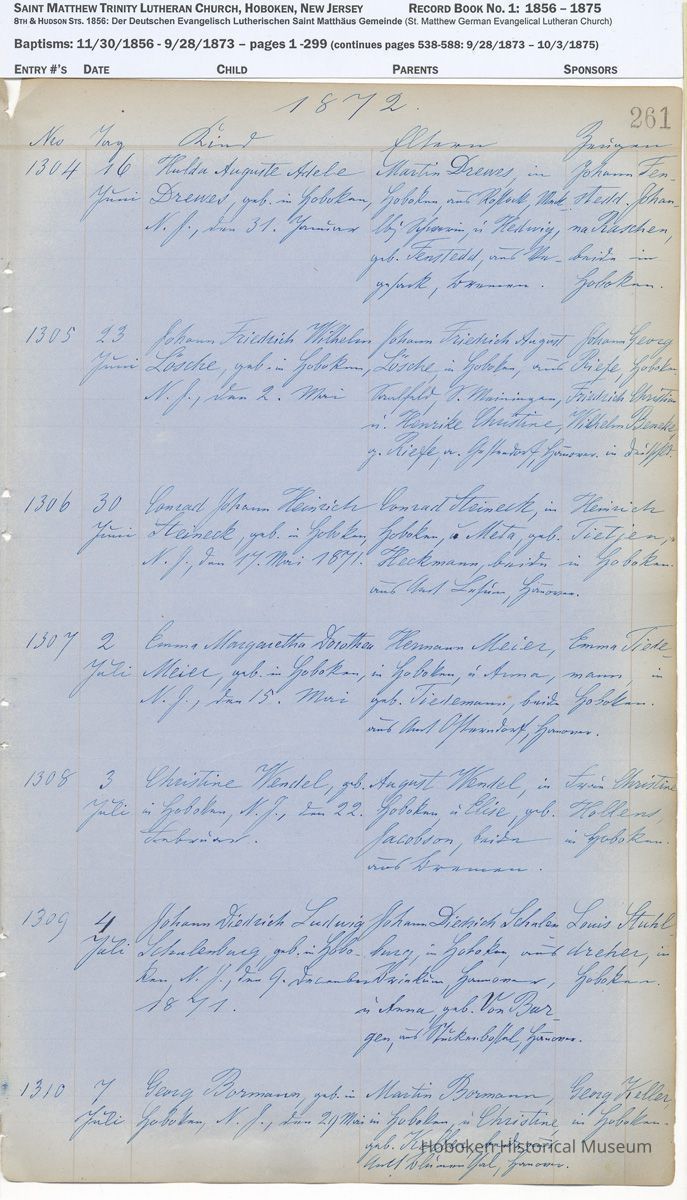 SAINT MATTHEW TRINITY LUTHERAN CHURCH, HOBOKEN, NEW JERSEY RECORD BOOK NO. 1: 1856 – 1875
8TH & HUDSON STS. 1856: Der Deutschen Evangelisch Lutherischen Saint Matthäus Gemeinde (St. Matthew German Evangelical Lutheran Church)
Baptisms: 11/30/1856 - 9/28/1873 – pages 1 -299 (continues pages 538-588: 9/28/1873 – 10/3/1875)
ENTRY #'S DATE CHILD PARENTS SPONSORS
1872.
261
Nro Tag Kind Eltern Zeugen
1304 16 Hulda Auguste Adele Martin Drewes, in Johann Fen-
Juni Drewes, geb. in Hoboken, Hoboken aus Rostock Meck- stedd. Johan-
N. J., den 31. Januar u. Hedwig, na Raschen,
geb. Fenstedd, aus Ve- beide in
gesack, Bremen. Hoboken.
1305 23 Johann Friedrich Wilhelm Johann Friedrich August Johann Georg
Juni Lösche, geb. in Hoboken, Lösche in Hoboken, aus Riefe, Hoboken
N. J., den 2. Mai Saalfeld, S. Meiningen, Friedrich Christian
u. Henrike Christine, Wilhelm Beneke,
g. Riefe, Hanover. in
1306 30 Conrad Johann Heinrich Conrad Steineck, in Heinrich
Juni Steineck, geb. in Hoboken, Hoboken, u. Meta, geb. Tietjen,
N. J., den 17. Mai 1871. Heckmann, beide in Hoboken.
aus Amt Lesum, Hanover.
1307 2 Emma Margaretha Dorothea Hermann Meier, Emma Tiede-
Juli Meier, geb. in Hoboken, in Hoboken, u. Anna, mann, in
N. J., den 15. Mai geb. Tiedemann, beide Hoboken.
aus Amt Osterndorf, Hanover.
1308 3 Christine Wendel, geb. August Wendel, in Frau Christine
Juli in Hoboken, N. J., den 22. Hoboken u. Elise, geb. Hollens,
Februar. Jacobson, beide in Hoboken.
aus Bremen.
1309 4 Johann Diedrich Ludwig Johann Diedrich Schulen Louis Stuhl-
Juli Schulenburg, geb. in Hobo- burg, in Hoboken, aus dreher, in
ken, N. J., den 9. December Hannover, Hoboken.
1871. u. Anna, geb. Von Bar-
gen, aus Hanover.
1310 7 Georg Bormann, geb. in Martin Bormann, Georg Keller,
Juli Hoboken, N. J., den 29 Mai in Hoboken u. Christine in Hoboken.
geb.
Amt Blumenthal, Hanover.
Hoboken Historical Museum